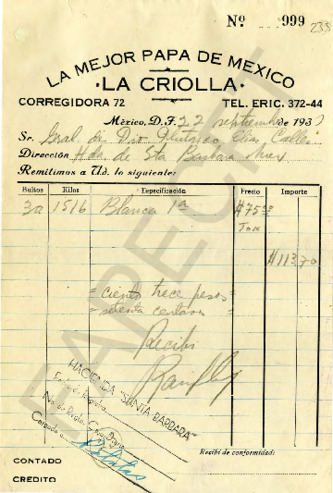 Nº 999
235
LA MEJOR PAPA DE MEXICO
· LA CRIOLLA ·
CORREGIDORA 72 TEL. ERIC. 372-44
México, D. F. 22 septiembre de 193
Sr. Gral. de Div. Plutarco Elías Calles
Dirección Hda. de Sta Barbara Mex
Remitimos a Ud. lo siguiente:
Bultos Kilos Especificación Precio Importe
1516 Blanca 1ª $75.00
Ton
$113.70
= ciento trece pesos =
= setenta centavos =
Recibi
HACIENDA "SANTA BARBARA"
CONTADO
CREDITO
Recibí de conformidad:
PARECFT